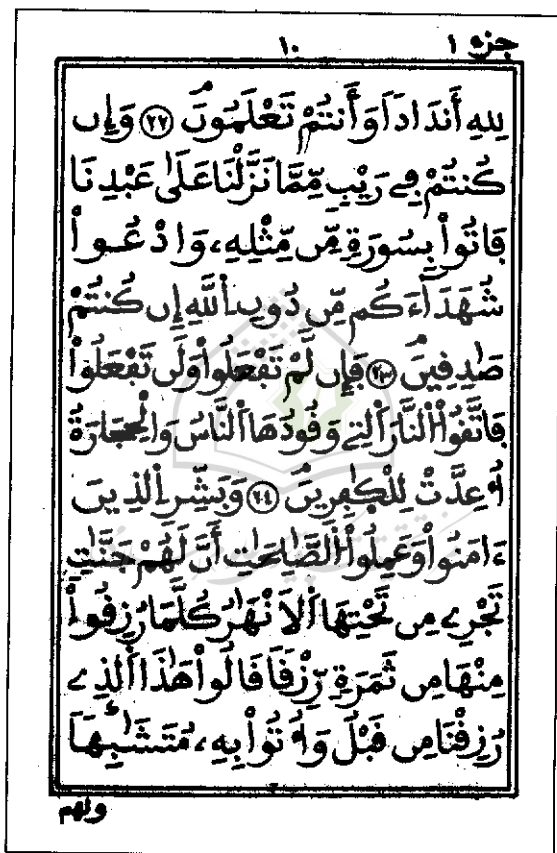 جزء ١ ١٠
لِلهِ أَندَاداَ وَأَنتُمْ تَعْلَمُونَ ٢٢ وَإِن
كُنتُمْ فِے رَيْبٍ مِّمَّا نَزَّلْنَا عَلَىٰ عَبْدِنَا
فَاتُواْ بِسُورَةٍ مِّن مِّثْلِهِ، وَادْعُواْ
شُهَدَآءَكُم مِّن دُونِ اِللَّهِ إِن كُنتُمْ
صَٰدِقِينَ ٢٣ فَإِن لَّمْ تَفْعَلُواْ وَلَن تَفْعَلُواْ
فَاتَّقُواْ اُلنَّارَ اَلتِے وَقُودُهَا اَلنَّاسُ وَالْحِجَارَةُ
أُعِدَّتْ لِلْكَٰفِرِينَ ٢٤ وَبَشِّرِ اِلذِينَ
ءَامَنُواْ وَعَمِلُواْ اُلصَّٰلِحَٰتِ أَنَّ لَهُمْ جَنَّٰتٍ
تَجْرِے مِن تَحْتِهَا اَلاَنْهَٰرُ كُلَّمَا رُزِقُواْ
مِنْهَا مِن ثَمَرَةٍ رِّزْقاَ قَالُواْ هَٰذَا اَلذِے
رُزِقْنَا مِن قَبْلُ وَأُتُواْ بِهِ، مُتَشَٰبِهاَ
ولهم